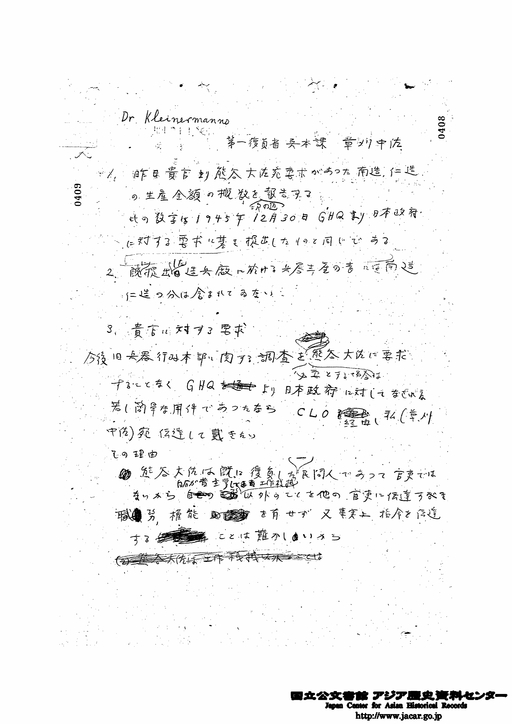 Dr. Kleinermanno
0408
0409
第一復員省 兵本課 草刈中佐
1, 昨日貴官より熊谷大佐宛要求があった南造, 仁造
の生産金額の概数を報告する
此の数字は1945年12月30日GHQより日本政府
に対する要求に基き提出したものと同じである
2.
仁造の分は含まれてゐない
3, 貴官に対する要求
今後旧兵器行政本部に関する調査を熊谷大佐に要求
必要とする場合は
することなく GHQ より日本政府に対してなされ度
若し簡単な用件であったなら CLO 経由し私(草刈
中佐)宛 伝達して戴きたい
その理由
熊谷大佐は既に復員した民間人であって官吏では
ないから 以外のことを他の官吏に伝達する
職労, 権能 を有せず 又事実上指令を伝達
する ことは難かしいから
国立公文書館 アジア歴史資料センター
Japan Center for Asian Historical Records
http://www.jacar.go.jp